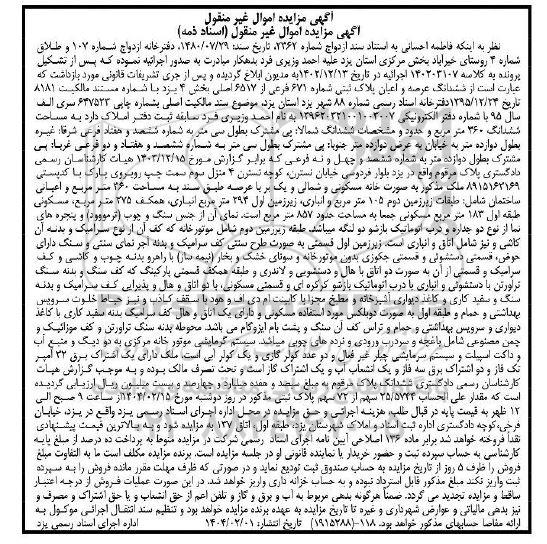 آگهی مزایده اموال غیر منقول
آگهی مزایده اموال غیر منقول (اسناد ذمه)
نظر به اینکه فاطمه احسانی به استناد سند ازدواج شماره ۲۳۶۷، تاریخ سند: ۱۴۸۰/۰۷/۲۹، دفترخانه ازدواج شماره ۱۰۷ و طلاق
شماره ۴ روستای خیرآباد بخش مرکزی استان یزد علیه احمد وزیری فرد بدهکار مبادرت به صدور اجرائیه نموده که پس از تشکیل
پرونده به کلاسه ۱۴۰۲۰۳۱۰۷ اجرائیه در تاریخ ۱۴۰۲/۱۲/۱۳به مدیون ابلاغ گردیده و پس از جری تشریفات قانونی مورد بازداشت که
عبارت است از ششدانگ عرصه و اعیان پلاک ثبتی شماره ۶۷۱ فرعی از ۶۵۱۷ اصلی بخش ۴ یزد با شماره مستند مالکیت ۸۱۸۱
تاریخ ۱۳۹۵/۱۲/۲۴دفترخانه اسناد رسمی شماره ۸۸ شهر یزد استان یزد، موضوع سند مالکیت اصلی بشماره چاپی ۶۴۷۵۲۳ سری الف
سال ۹۵ با شماره دفتر الکترونیکی ۱۳۹۶۲۰۳۲۱۰۰۱۰۲۰۰۷ به نام احمد وزیری فرد سابقه ثبت دفتر املاک دارد به مساحت
ششدانگ ۳۶۰ متر مربع و حدود و مشخصات ششدانگ شمالا: پی مشترک بطول سی متر به شماره ششصد و هفتاد فرعی شرقا: غیره
بطول دوازده متر به خیابان به عرض دوازده متر جنوبا: پی مشترک بطول سی متر به شماره ششصد و هفتاد و دو فرعی غربا: پی
مشترک بطول دوازده متر به شماره ششصد و چهل و نه فرعی که برابر گزارش مورخ ۱۴۰۳/۱۲/۱۵ هیات کارشناسان رسمی
دادگستری پلاک مرقوم واقع در یزد بلوار فردوسی خیابان نسترن، کوچه نسترن ۴ منزل سوم سمت چپ روبروی پارک با کدپستی
۸۹۱۵۱۶۲۱۶۹ ملک مذکور به صورت خانه مسکونی و شمالی و یکبر با عرصه طبق سند به مساحت ۳۶۰ متر مربع و اعیانی
ساختمان شامل: طبقات زیرزمین دوم ۱۰۵ متر مربع و انباری، زیرزمین اول ۲۹۴ متر مربع انباری، همکف ۲۷۵ متر مربع، مسکونی
طبقه اول ۱۸۳ متر مربع مسکونی جمعا به مساحت حدود ۸۵۷ متر مربع است. نمای آن از جنس سنگ و چوب (ترموود) و پنجره های
نما از نوع دو جداره و درب اتوماتیک بازشو دو لنگه میباشد طبقه زیرزمین دوم شامل موتورخانه که کف آن از نوع سرامیک و بدنه آن
کاشی و نیز شامل اتاق و انباری است. زیرزمین اول قسمتی به صورت طرح سنتی کف سرامیک و بدنه آجر نمای سنتی و سنگ دارای
حوض، قسمتی دستشوئی و قسمتی جکوزی بدون موتورخانه و سونای خشک و بخار (نیمه ساز) با راهرو بدنه چوب و کاشی و کف
سرامیک و قسمتی از آن به صورت دو اتاق با هال و دستشویی و لاندری و طبقه همکف قسمتی پارکینگ که کف سنگ و بدنه سنگ
تراورتن با دستشوئی و انباری با درب اتوماتیک بازشو کرکره ای و قسمتی مسکونی، با دو اتاق و هال و پذیرایی کف سرامیک و بدنه
سنگ و سفید کاری و کاغذ دیواری آشپزخانه و مطبخ مجزا با کابینت ام دی اف و هود با سقف کاذب و نیز اتاق خواب خلوت سرویس
بهداشتی و حمام و طبقه اول به صورت دوبلکس مورد استفاده مسکونی و دارای یک اتاق و هال کف سرامیک بدنه سفید کاری با کاغذ
دیواری و سرویس بهداشتی و حمام و تراس کف آن سنگ و پشت بام ایزوگام می باشد. محوطه بدنه سنگ تراورتن و کف موزائیک و
چمن مصنوعی شامل باغچه و سردرب ورودی و نرده های چوبی میباشد. سیستم گرمایشی موتور خانه مرکزی به دو دیگ و منبع آب
و داکت اسپیلت و سیستم سرمایشی چیلر غیر فعال و دو عدد کولر گازی و یک کولر آبی است، ملک دارای یک اشتراک برق ۳۲ آمپر
تک فاز و دو اشتراک برق سه فاز و یک انشعاب آب و یک اشتراک گاز است و تحت تصرف مالک بوده و به موجب گزارش هیات
کارشناسان رسمی دادگستری ششدانگ پلاک مرقوم به مبلغ سیصد و هفده میلیارد و چهارصد و بیست میلیون ریال ارزیابی گردیده
است که مقدار علی الحساب ۲۵/۵۷۳۴ سهم از ۷۲ سهم پلاک ثبتی مذکور در روز دوشنبه مورخ ۱۴۰۴/۰۲/۱۵از ساعت ۹ صبح الی
۱۲ ظهر به قیمت پایه در قبال طلب، هزینه اجرائی و حق مزایده در محل اداره اجرای اسناد رسمی یزد واقع در یزد، خیابان
فرخی،کوچه دادگستری اداره ثبت اسناد و املاک شهرستان یزد، طبقه اول، اتاق ۱۷ به مزایده شود و به بالاترین قیمت پیشنهادی
نقداً فروخته خواهد شد برابر ماده ۱۳۶ اصلاحی آیین نامه اجرای اسناد رسمی شرکت در مزایده منوط به پرداخت ده درصد از مبلغ پایه
کارشناسی به حساب سپرده ثبت و حضور خریدار یا نماینده قانونی او در جلسه مزایده است. برنده مزایده مکلف است ما به التفاوت مبلغ
فروش را ظرف ۵ روز از تاریخ مزایده به حساب صندوق ثبت تودیع نماید و در صورتی که ظرف مهلت مقرر مانده فروش را به سپرده
ثبت واریز نکند مبلغ مذکور قابل استرداد نبوده و به حساب خزانه داری واریز خواهد شد، در این صورت عملیات فروش از درجه اعتبار
ساقط و مزایده تجدید می گردد. ضمناً هرگونه بدهی مربوط به آب و برق و گاز و تلفن اعم از حق انشعاب و یا حق اشتراک و مصرف و
نیز بدهی مالیاتی و عوارض شهرداری و غیره تا تاریخ مزایده به عهده برنده مزایده خواهد بود و تنظیم سند انتقال اجرائی موکول به
ارائه مفاصا حسابهای مذکور خواهد بود. ۱۱۸-(۱۹۱۵۲۸۸) تاریخ انتشار: ۱۴۰۴/۰۲/۰۱ اداره اجرای اسناد رسمی یزد